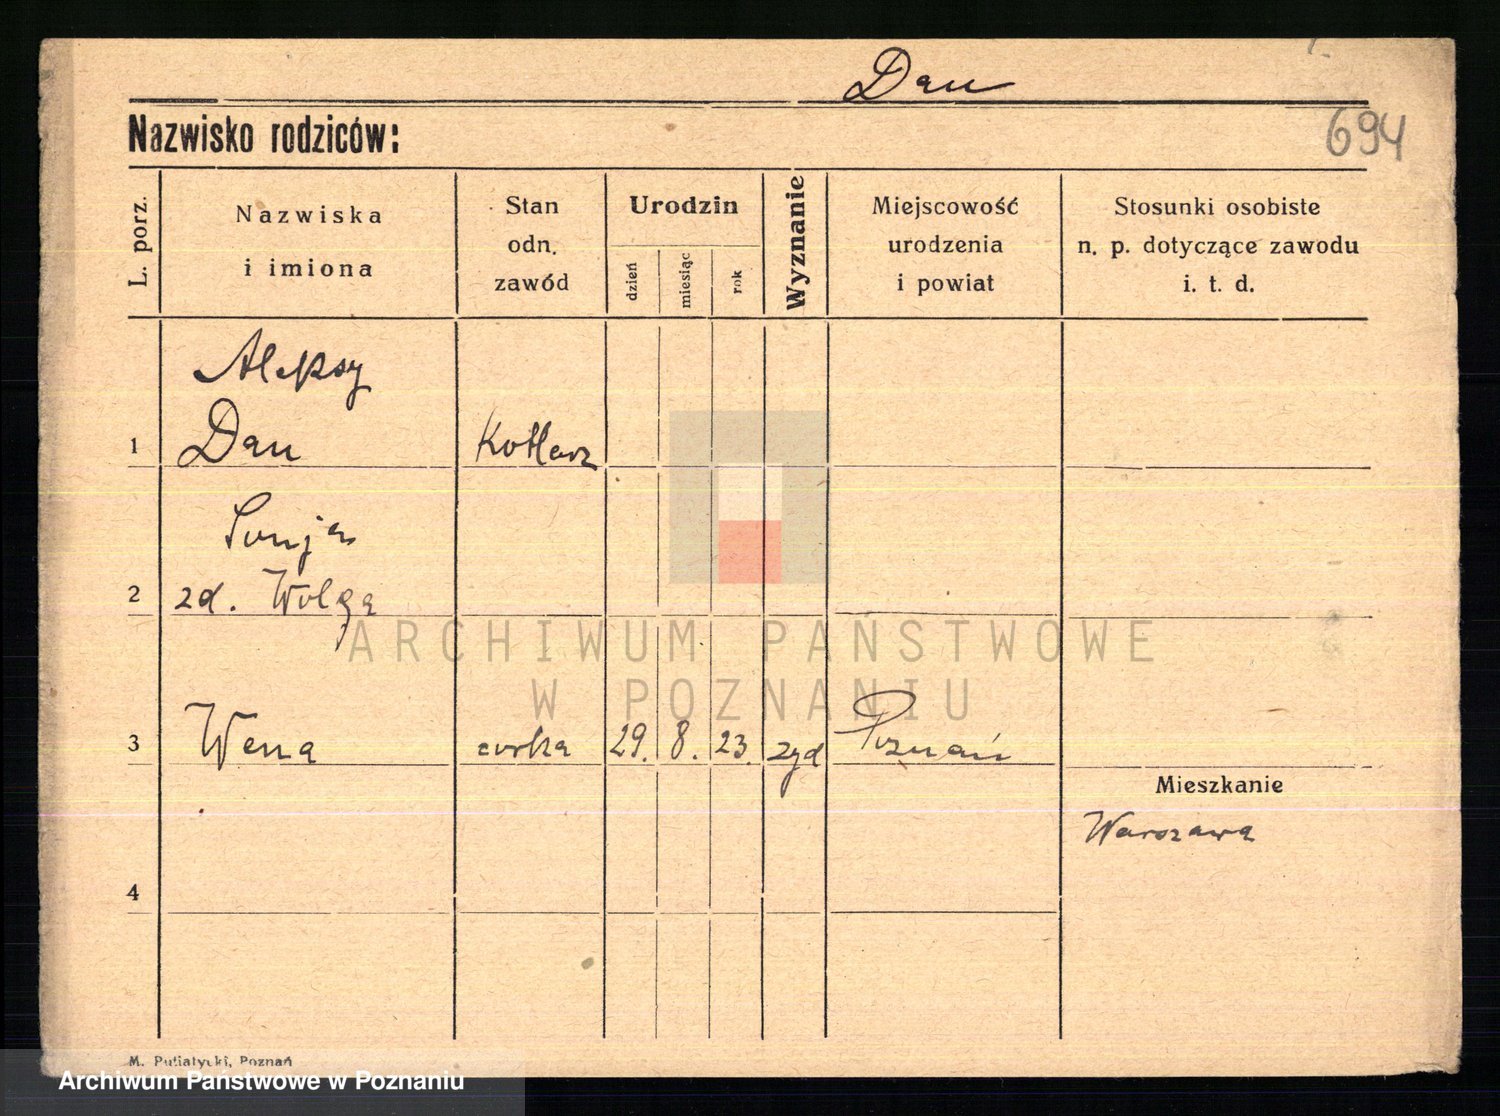 Dau
694
Nazwisko rodziców:
L. porz.
Nazwiska
i imiona
Stan
odn.
zawód
Urodzin
dzień
miesiąc
rok
Wyznanie
Miejscowość
urodzenia
i powiat
Stosunki osobiste
n. p. dotyczące zawodu
i. t. d.
Aleksy
1 Dau Kotlarz
Sonja
2 zd. Wolga
ARCHIWUM PAŃSTWOWE
W POZNANIU
3 Wena curka 29. 8. 23. żyd Poznań
Mieszkanie
Warszawa
4
M. Putiatycki, Poznań
Archiwum Państwowe w Poznaniu